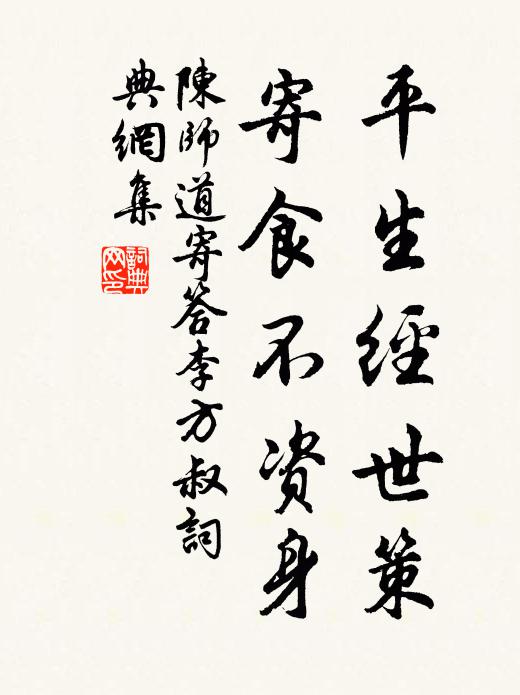 平生經世策
寄食不資身
陳師道寄答李方叔詞
典網集
詞典網印